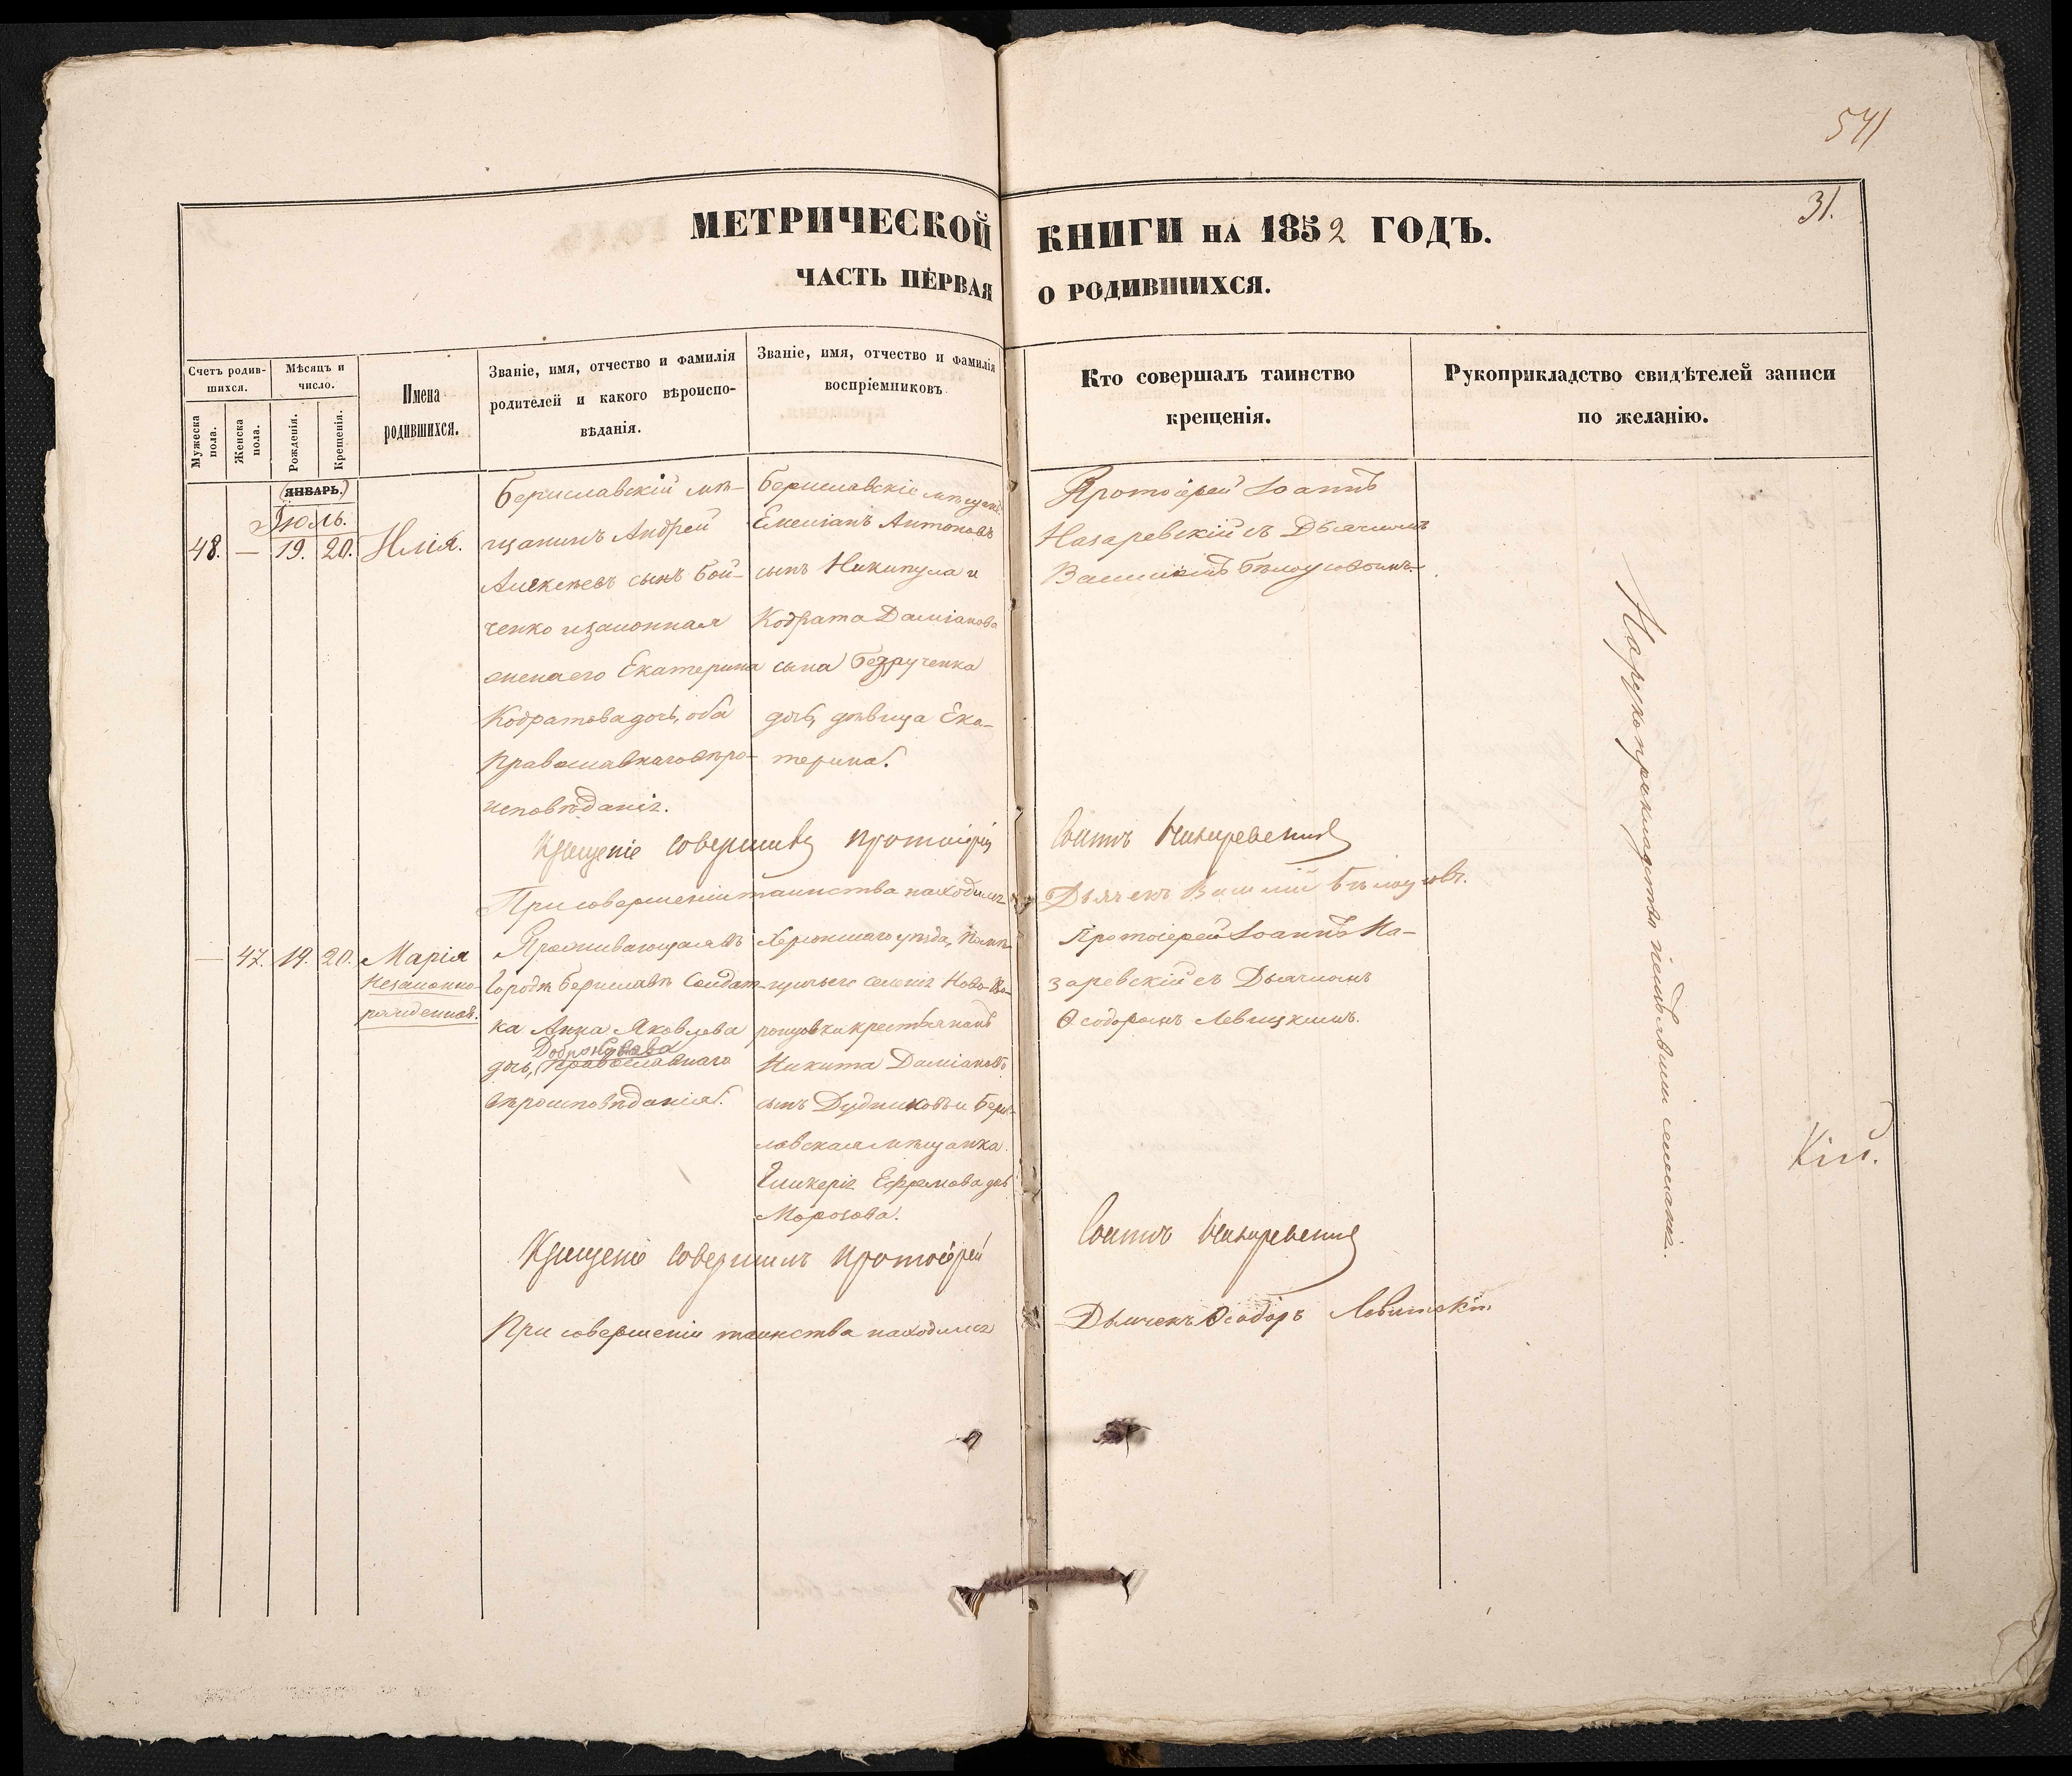 541
31.
МЕТРИЧЕСКОЙ КНИГИ НА 1852 ГОДЪ.
ЧАСТЬ ПЕРВАЯ О РОДИВШИХСЯ.
Счетъ родив-
шихся.
Мужеска
пола.
Женска
пола.
Мѣсяцъ и
число.
Рожденія.
Крещенія.
Имена
родившихся.
Званіе, имя, отчество и фамилія
родителей и какого вѣроиспо-
вѣданія.
Званіе, имя, отчество и фамилія
воспріемниковъ
Кто совершалъ таинство
крещенія.
Рукоприкладство свидѣтелей записи
по желанію.
(ЯНВАРЬ.)
Іюль.
48. — 19. 20. Илія.
Бериславскій мѣ-
щанинъ Андрей
Алексѣевъ сынъ Бой-
ченко и законная
жена его Екатерина
Кодратова дочь, оба
православнаго вѣро-
исповѣданія.
Бериславскіе мѣщане
Емеліанъ Антоновъ
сынъ и
Кодрата Даміанова
сына Безрученка
дочь, дѣвица Ека-
терина.
Протоіерей Іоаннъ
Назаревскій съ Дьячкомъ
Василіемъ Бѣлоусовымъ.
Крещеніе совершилъ протоіерей Іоаннъ Назаревскій
При совершеніи таинства находился Дьячекъ Василій Бѣлоусовъ.
— 47. 19. 20. Марія
незаконно-
рожденная.
Проживающая въ
городѣ Бериславѣ Солдат-
ка Анна Яковлева
дочь, православнаго
вѣроисповѣданія.
Херсонскаго уѣзда, помѣ-
щичьяго селенія Ново-Во-
ронцовки крестьянинъ
Никита Даміановъ
сынъ Дудниковъ и Берис-
лавская мѣщанка
Гликерія Ефремова дочь
Морозова.
Протоіерей Іоаннъ На-
заревскій съ Дьячкомъ
Ѳеодоромъ Левицкимъ.
Крещеніе совершилъ протоіерей Іоаннъ Назаревскій
При совершеніи таинства находился Дьячекъ Ѳеодоръ Левитскій
Кій.